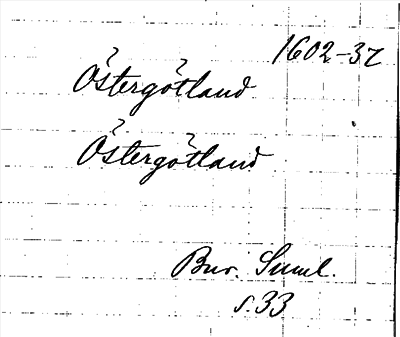 1602-32
Östergötland
Östergötland
Bur. Suml.
s. 33